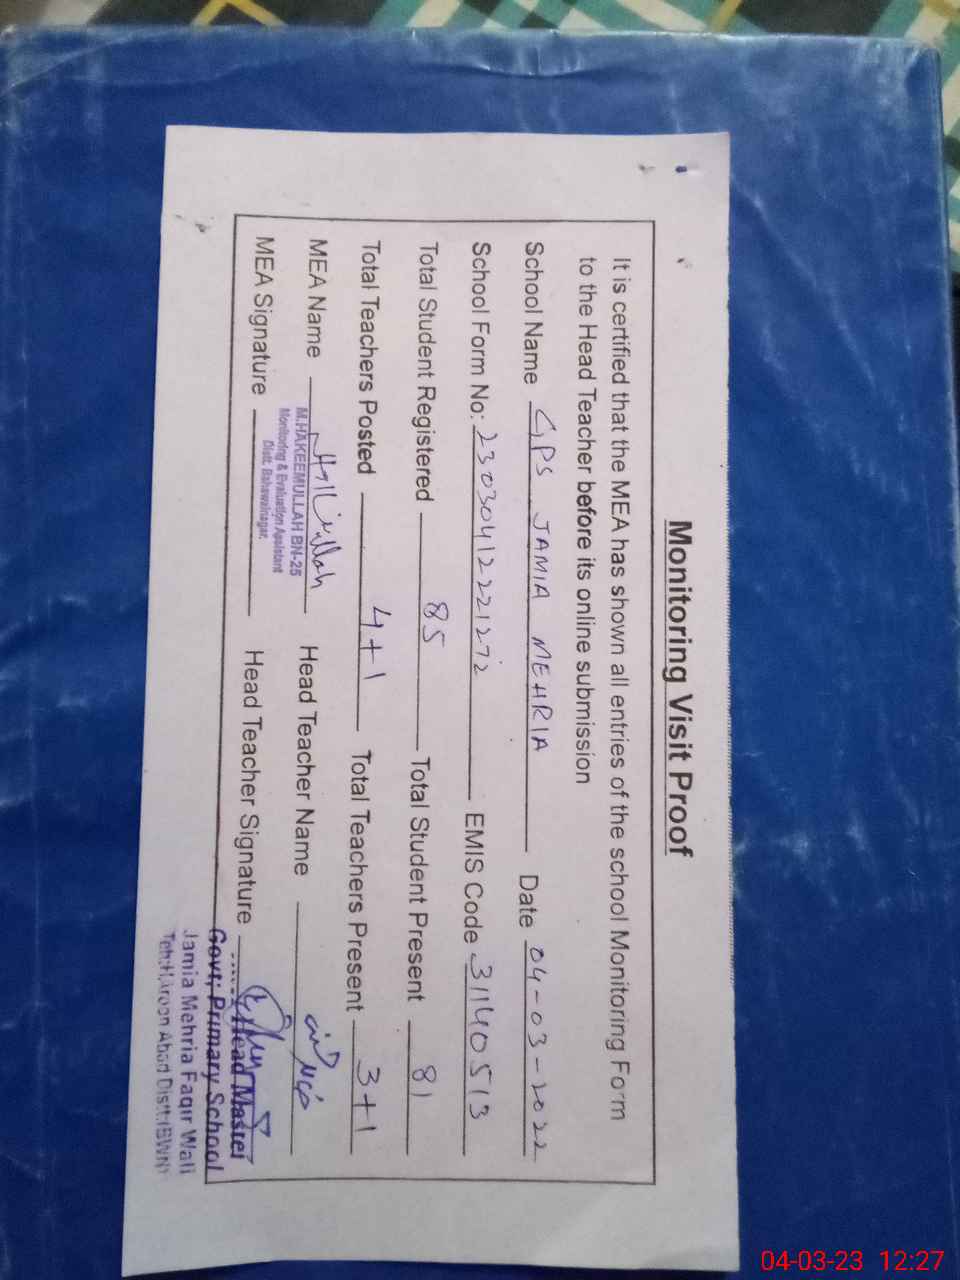 Monitoring Visit Proof
It is certified that the MEA has shown all entries of the school Monitoring Form
to the Head Teacher before its online submission
School Name GPS JAMIA MEHRIA Date 04-03-2022
School Form No: 2303041221272 EMIS Code 31140513
Total Student Registered 85 Total Student Present 81
Total Teachers Posted 4+1 Total Teachers Present 3+1
MEA Name Head Teacher Name
M.HAKEEMULLAH BN-25
Monitoring & Evaluation Assistant
Distt. Bahawalnagar.
MEA Signature Head Teacher Signature
Head Master
Govt; Primary School
Jamia Mehria Faqir Wali
Teh:Haroon Abad Distt:(BWN)
04-03-23 12:27